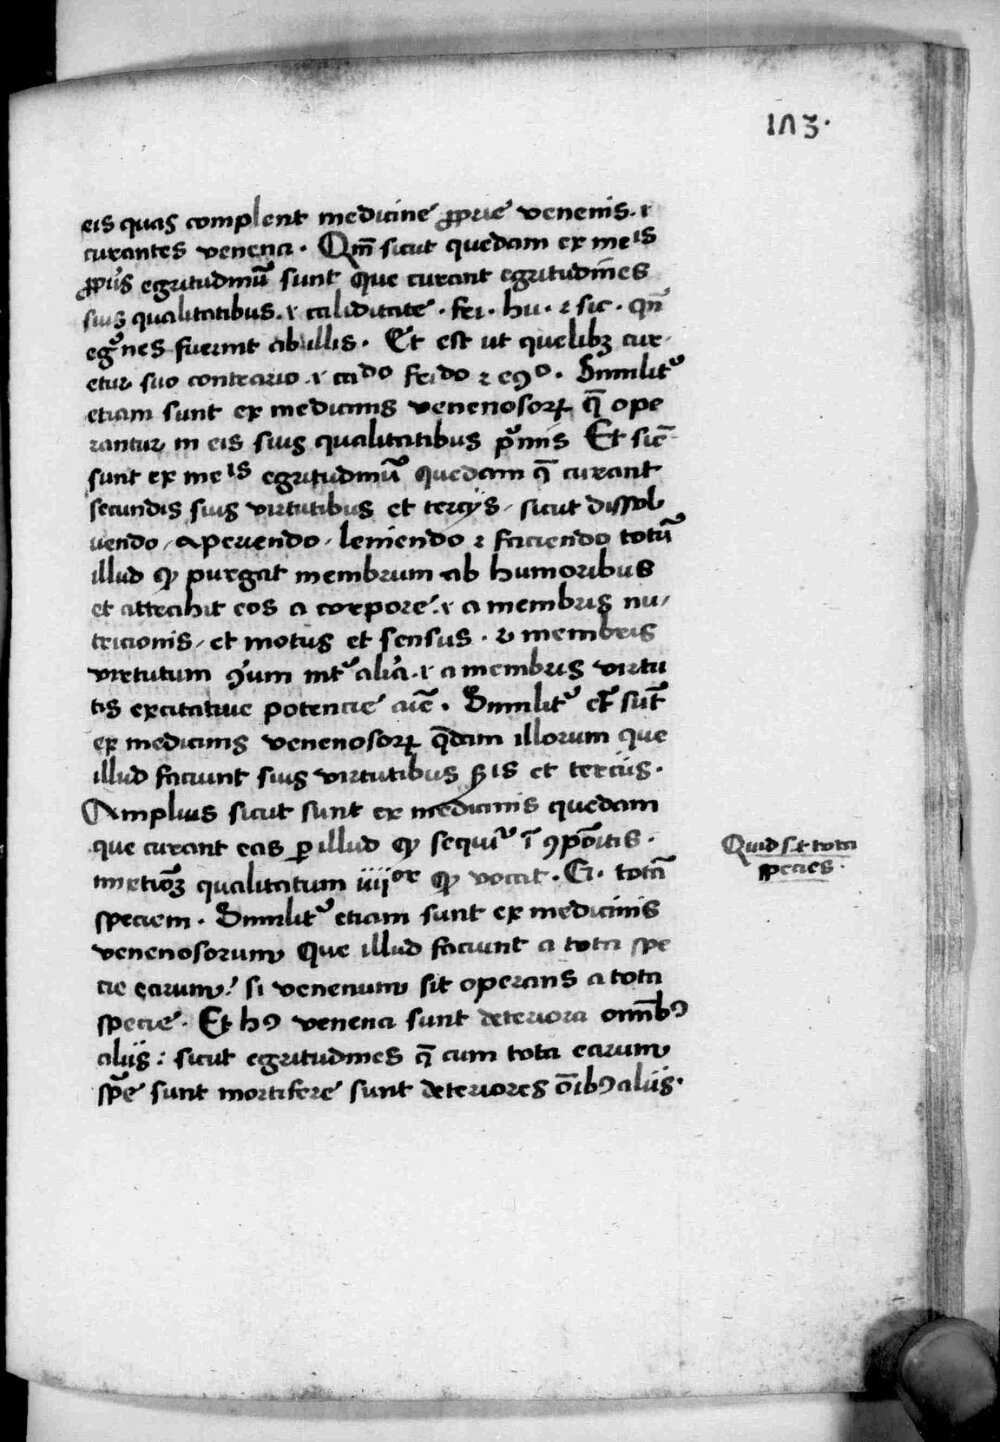 103.
eis quas complent medicine ꝓprie venenis · ⁊
curantes venena · Qm̅ sicut quedam ex meis
ꝓpiis egritudinu̅ sunt Que curant egritudines
suis qualitatibus · ⁊ caliditate · fri · hu · ⁊ sic · qn̅
egͥnes fuerint ab illis · Et est ut quelibꝫ cur-
etur suo contrario ⁊ cado frido ⁊ eꝯo · Similitͬ
etiam sunt ex medicinis venenosoꝝ q̅ ope
rantur in eis suis qualitatibus pͥmis Et sic̅
sunt ex meis egritudinu̅ quedam q̅ curant
secundis suis virtutibus et tercijs / sicut dissol
uendo / aperiendo / leniendo ⁊ faciendo totu̅
illud ꝙ purgat membrum ab humoribus
et attrahit eos a corpore · ⁊ a membris nu /
tricionis / et motus et sensus · ⁊ membris
virtutum
tis excitatiue potencie aīe · Similitͬ et̅ su̅t
ex medicinis venenosoꝝ q̅dam illorum que
illud faciunt suis virtutibus ẜis et terciis ·
Amplius sicut sunt ex medicinis quedam
que curant eas ꝑ illud ꝙ sequit̉ i̅ ꝯpo̅itis ·
mixtio̅ꝫ qualitatum iiijor ꝙ vocat · G · tota̅
speciem · Similitͬ etiam sunt ex medicinis
venenosorum Que illud faciunt a tota spe
cie earum / si venenum sit operans a tota
specie · Et hꝯ venena sunt deteriora omn̅bꝯ
aliis : sicut egritudines q̅ cum tota earum
sp̅e sunt mortifere sunt deteriores o̅ibꝯ aliis ·
Quid sit tota
species ·